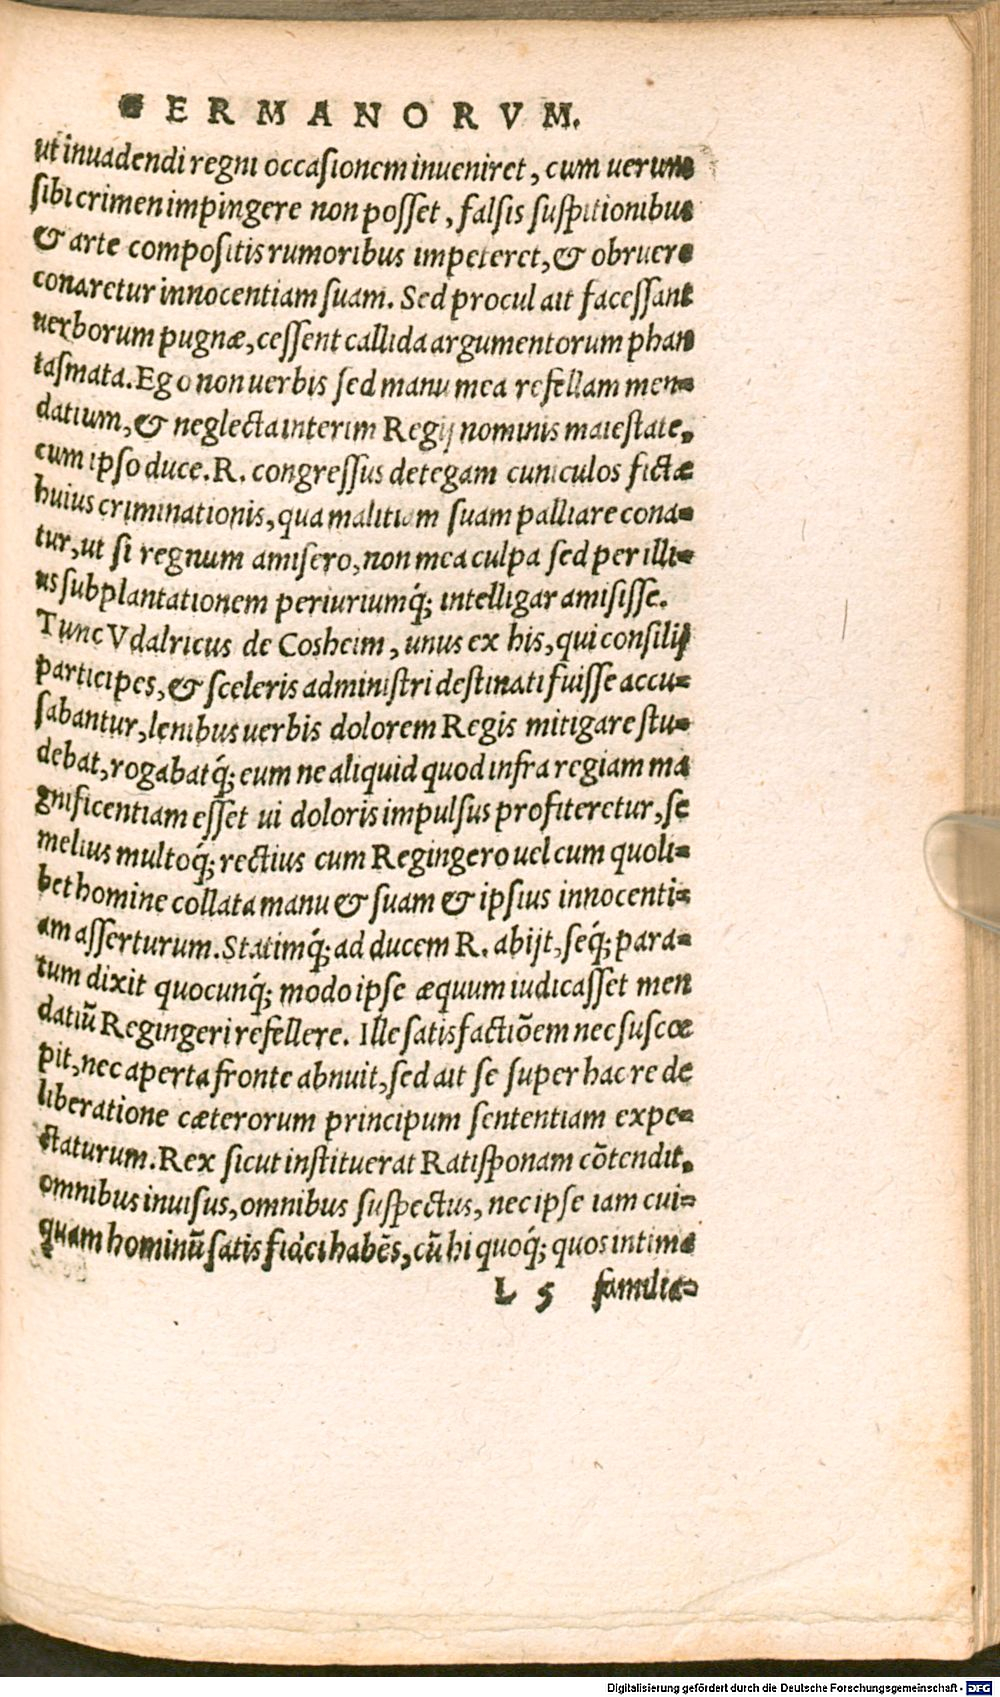 GERMANORVM.
ut inuadendi regni occasionem inueniret, cum uerum
sibi crimen impingere non posset, falsis suspitionibus
& arte compositis rumoribus impeteret, & obruere
conaretur innocentiam suam. Sed procul ait facessant
uerborum pugnæ, cessent callida argumentorum phan
tasmata. Ego non uerbis sed manu mea refellam men-
datium, & neglecta interim Regij nominis maiestate,
cum ipso duce. R. congressus detegam cuniculos fictæ
huius criminationis, qua malitiam suam palliare cona-
tur, ut si regnum amisero, non mea culpa sed per illi-
us subplantationem periuriumq́; intelligar amisisse.
Tunc Vdalricus de Cosheim, unus ex his, qui consilij
participes, & sceleris administri destinati fuisse accu-
sabantur, lenibus uerbis dolorem Regis mitigare stu-
debat, rogabatq́; eum ne aliquid quod infra regiam ma
gnificentiam esset ui doloris impulsus profiteretur, se
melius multoq́; rectius cum Regingero uel cum quoli-
bet homine collata manu & suam & ipsius innocenti-
am asserturum. Statimq́; ad ducem R. abijt, seq́; para-
tum dixit quocunq́; modo ipse æquum iudicasset men
datiũ Regingeri refellere. Ille satisfactiõem nec suscœ
pit, nec aperta fronte abnuit, sed ait se super hac re de
liberatione cæterorum principum sententiam expe-
ctaturum. Rex sicut instituerat Ratisponam cõtendit,
omnibus inuisus, omnibus suspectus, nec ipse iam cui-
quam hominũ satis fidei habẽs, cũ hi quoq́; quos intimæ
L 5 familia-
Digitalisierung gefördert durch die Deutsche Forschungsgemeinschaft - DFG